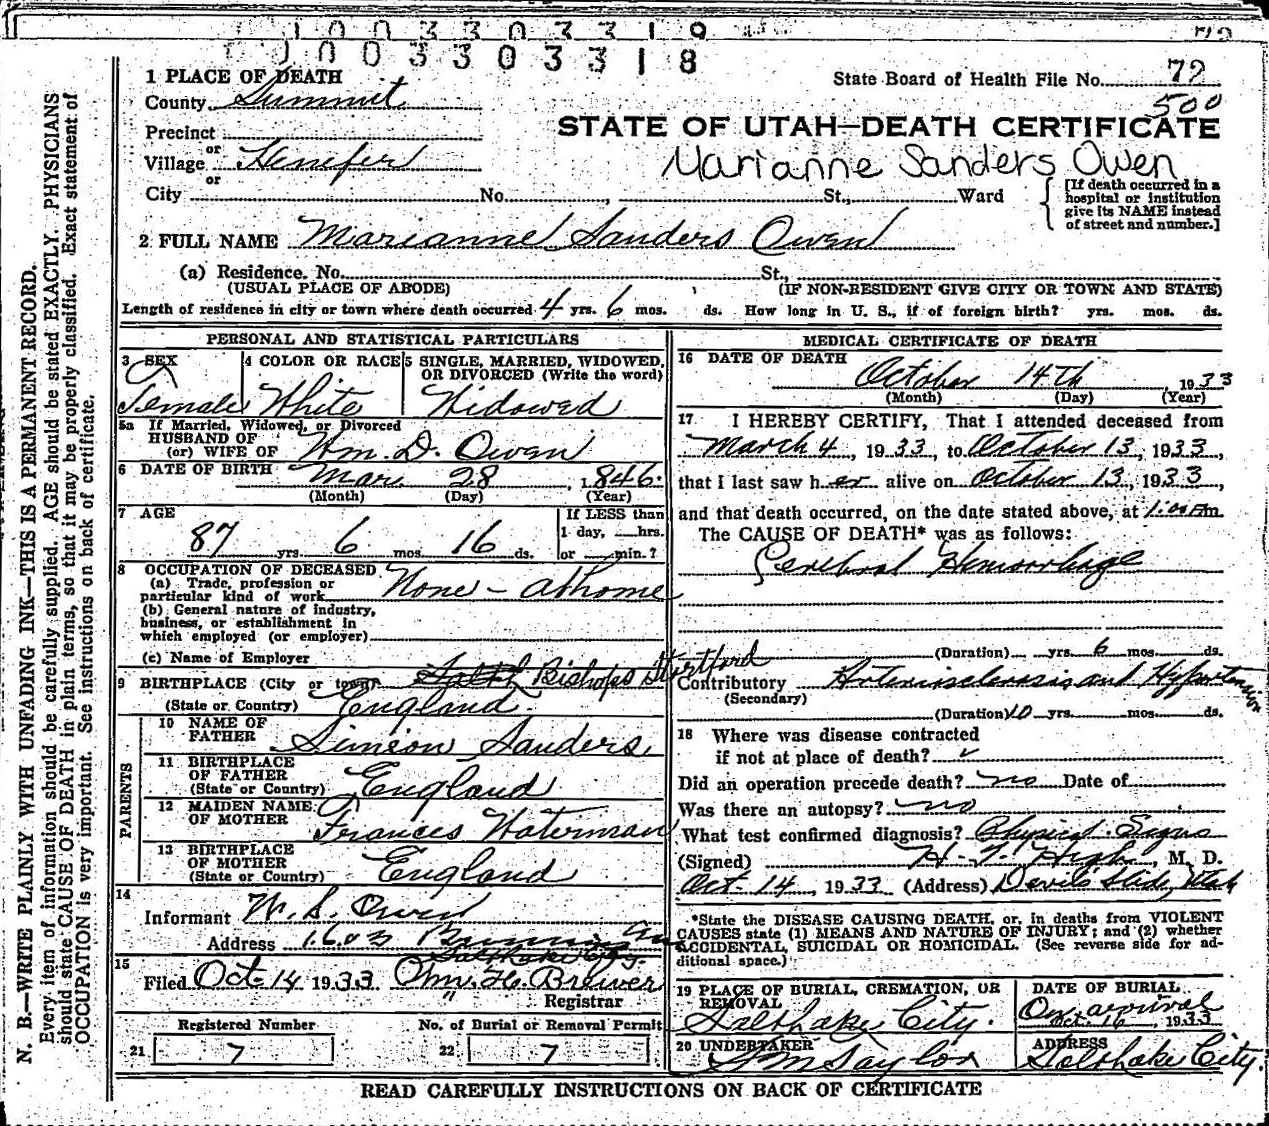 1003303319
1003303318
State Board of Health File No. 72
500
1 PLACE OF DEATH
County Summit
STATE OF UTAH—DEATH CERTIFICATE
Precinct
or
Village Henefer
Marianne Sanders Owen
or
City No. , St., Ward
[If death occurred in a hospital or institution give its NAME instead of street and number.]
2 FULL NAME Marianne Sanders Owen
(a) Residence. No. St.,
(USUAL PLACE OF ABODE) (IF NON-RESIDENT GIVE CITY OR TOWN AND STATE)
Length of residence in city or town where death occurred 4 yrs. 6 mos. ds. How long in U. S., if of foreign birth? yrs. mos. ds.
PERSONAL AND STATISTICAL PARTICULARS
3 SEX
Female
4 COLOR OR RACE
White
5 SINGLE, MARRIED, WIDOWED, OR DIVORCED (Write the word)
Widowed
5a If Married, Widowed, or Divorced
HUSBAND OF
(or) WIFE OF Wm. D. Owen
6 DATE OF BIRTH Mar. 28, 1846.
(Month) (Day) (Year)
7 AGE
87 yrs. 6 mos. 16 ds.
If LESS than
1 day, hrs.
or min.?
8 OCCUPATION OF DECEASED
(a) Trade, profession or
particular kind of work None - at home
(b) General nature of industry,
business, or establishment in
which employed (or employer)
(c) Name of Employer
9 BIRTHPLACE (City or town) Bishops Stortford
(State or Country) England.
PARENTS
10 NAME OF
FATHER Simeon Sanders
11 BIRTHPLACE
OF FATHER
(State or Country) England
12 MAIDEN NAME
OF MOTHER Frances Waterman
13 BIRTHPLACE
OF MOTHER
(State or Country) England
14
Informant W. S. Owen
Address
Salt Lake City.
15
Filed Oct. 14 1933 Wm. H. Brewer
Registrar
Registered Number
21 7
No. of Burial or Removal Permit
22 7
MEDICAL CERTIFICATE OF DEATH
16 DATE OF DEATH
October 14th, 1933
(Month) (Day) (Year)
17 I HEREBY CERTIFY, That I attended deceased from
March 4, 1933, to October 13, 1933,
that I last saw her alive on October 13, 1933,
and that death occurred, on the date stated above, at 1:00 Pm.
The CAUSE OF DEATH* was as follows:
Cerebral Hemorrhage
(Duration) yrs. 6 mos. ds.
Contributory Arteriosclerosis and Hypertension
(Secondary)
(Duration) 10 yrs. mos. ds.
18 Where was disease contracted
if not at place of death?
Did an operation precede death? no Date of
Was there an autopsy? no
What test confirmed diagnosis? Physical Signs
(Signed) High, M. D.
Oct. 14, 1933 (Address) Devils Slide, Utah
*State the DISEASE CAUSING DEATH, or, in deaths from VIOLENT
CAUSES state (1) MEANS AND NATURE OF INJURY; and (2) whether
ACCIDENTAL, SUICIDAL OR HOMICIDAL. (See reverse side for additional space.)
19 PLACE OF BURIAL, CREMATION, OR
REMOVAL
Salt Lake City.
DATE OF BURIAL
On arrival
Oct. 16, 1933
20 UNDERTAKER
S M Taylor
ADDRESS
Salt Lake City.
READ CAREFULLY INSTRUCTIONS ON BACK OF CERTIFICATE
N. B.—WRITE PLAINLY WITH UNFADING INK—THIS IS A PERMANENT RECORD.
Every item of information should be carefully supplied. AGE should be stated EXACTLY. PHYSICIANS
should state CAUSE OF DEATH in plain terms, so that it may be properly classified. Exact statement of
OCCUPATION is very important. See instructions on back of certificate.